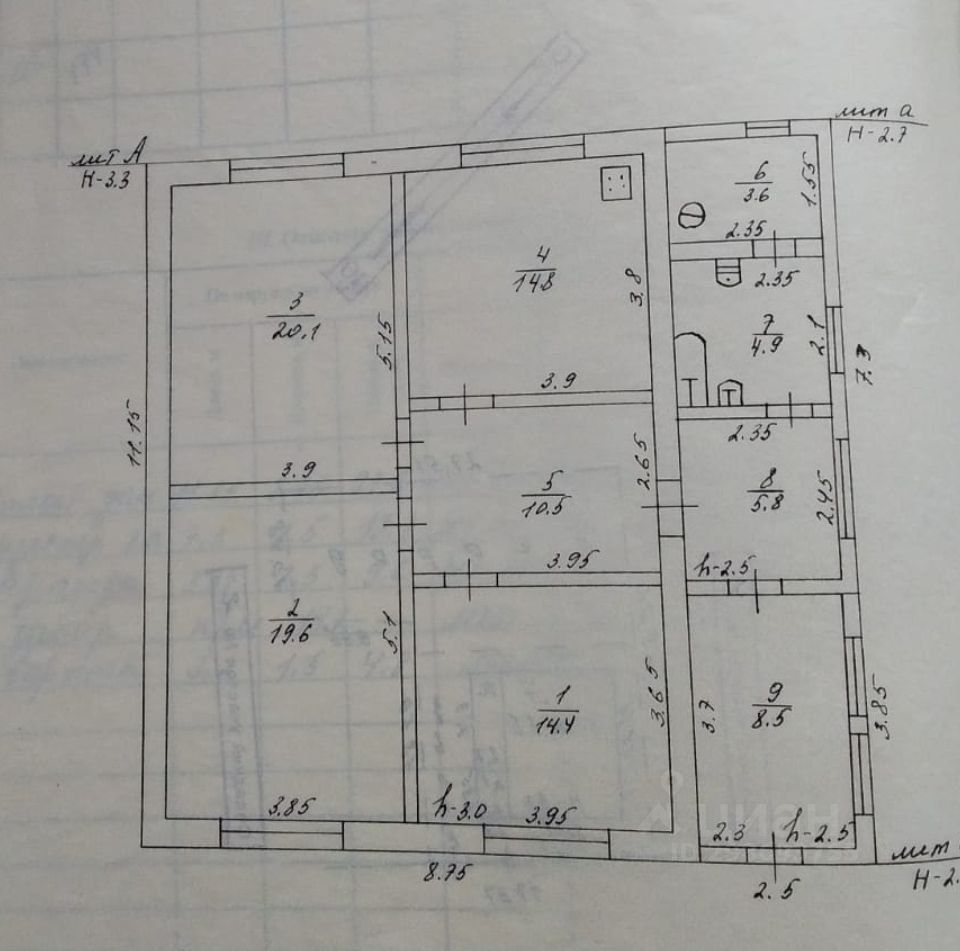 лит А
Н-3.3
лит а
Н-2.7
6
3.6
1.55
2.35
2.35
4
14.8
3.8
3
20.1
5.15
7
4.9
2.1
7.3
3.9
2.35
11.15
3.9
2.65
5
10.5
8
5.8
2.45
3.95
h-2.5
2
19.6
5.1
1
14.4
3.65
9
8.5
3.7
3.85
3.85
h-3.0
3.95
2.3
h-2.5
8.75
2.5
лит
Н-2.
ЦИАН